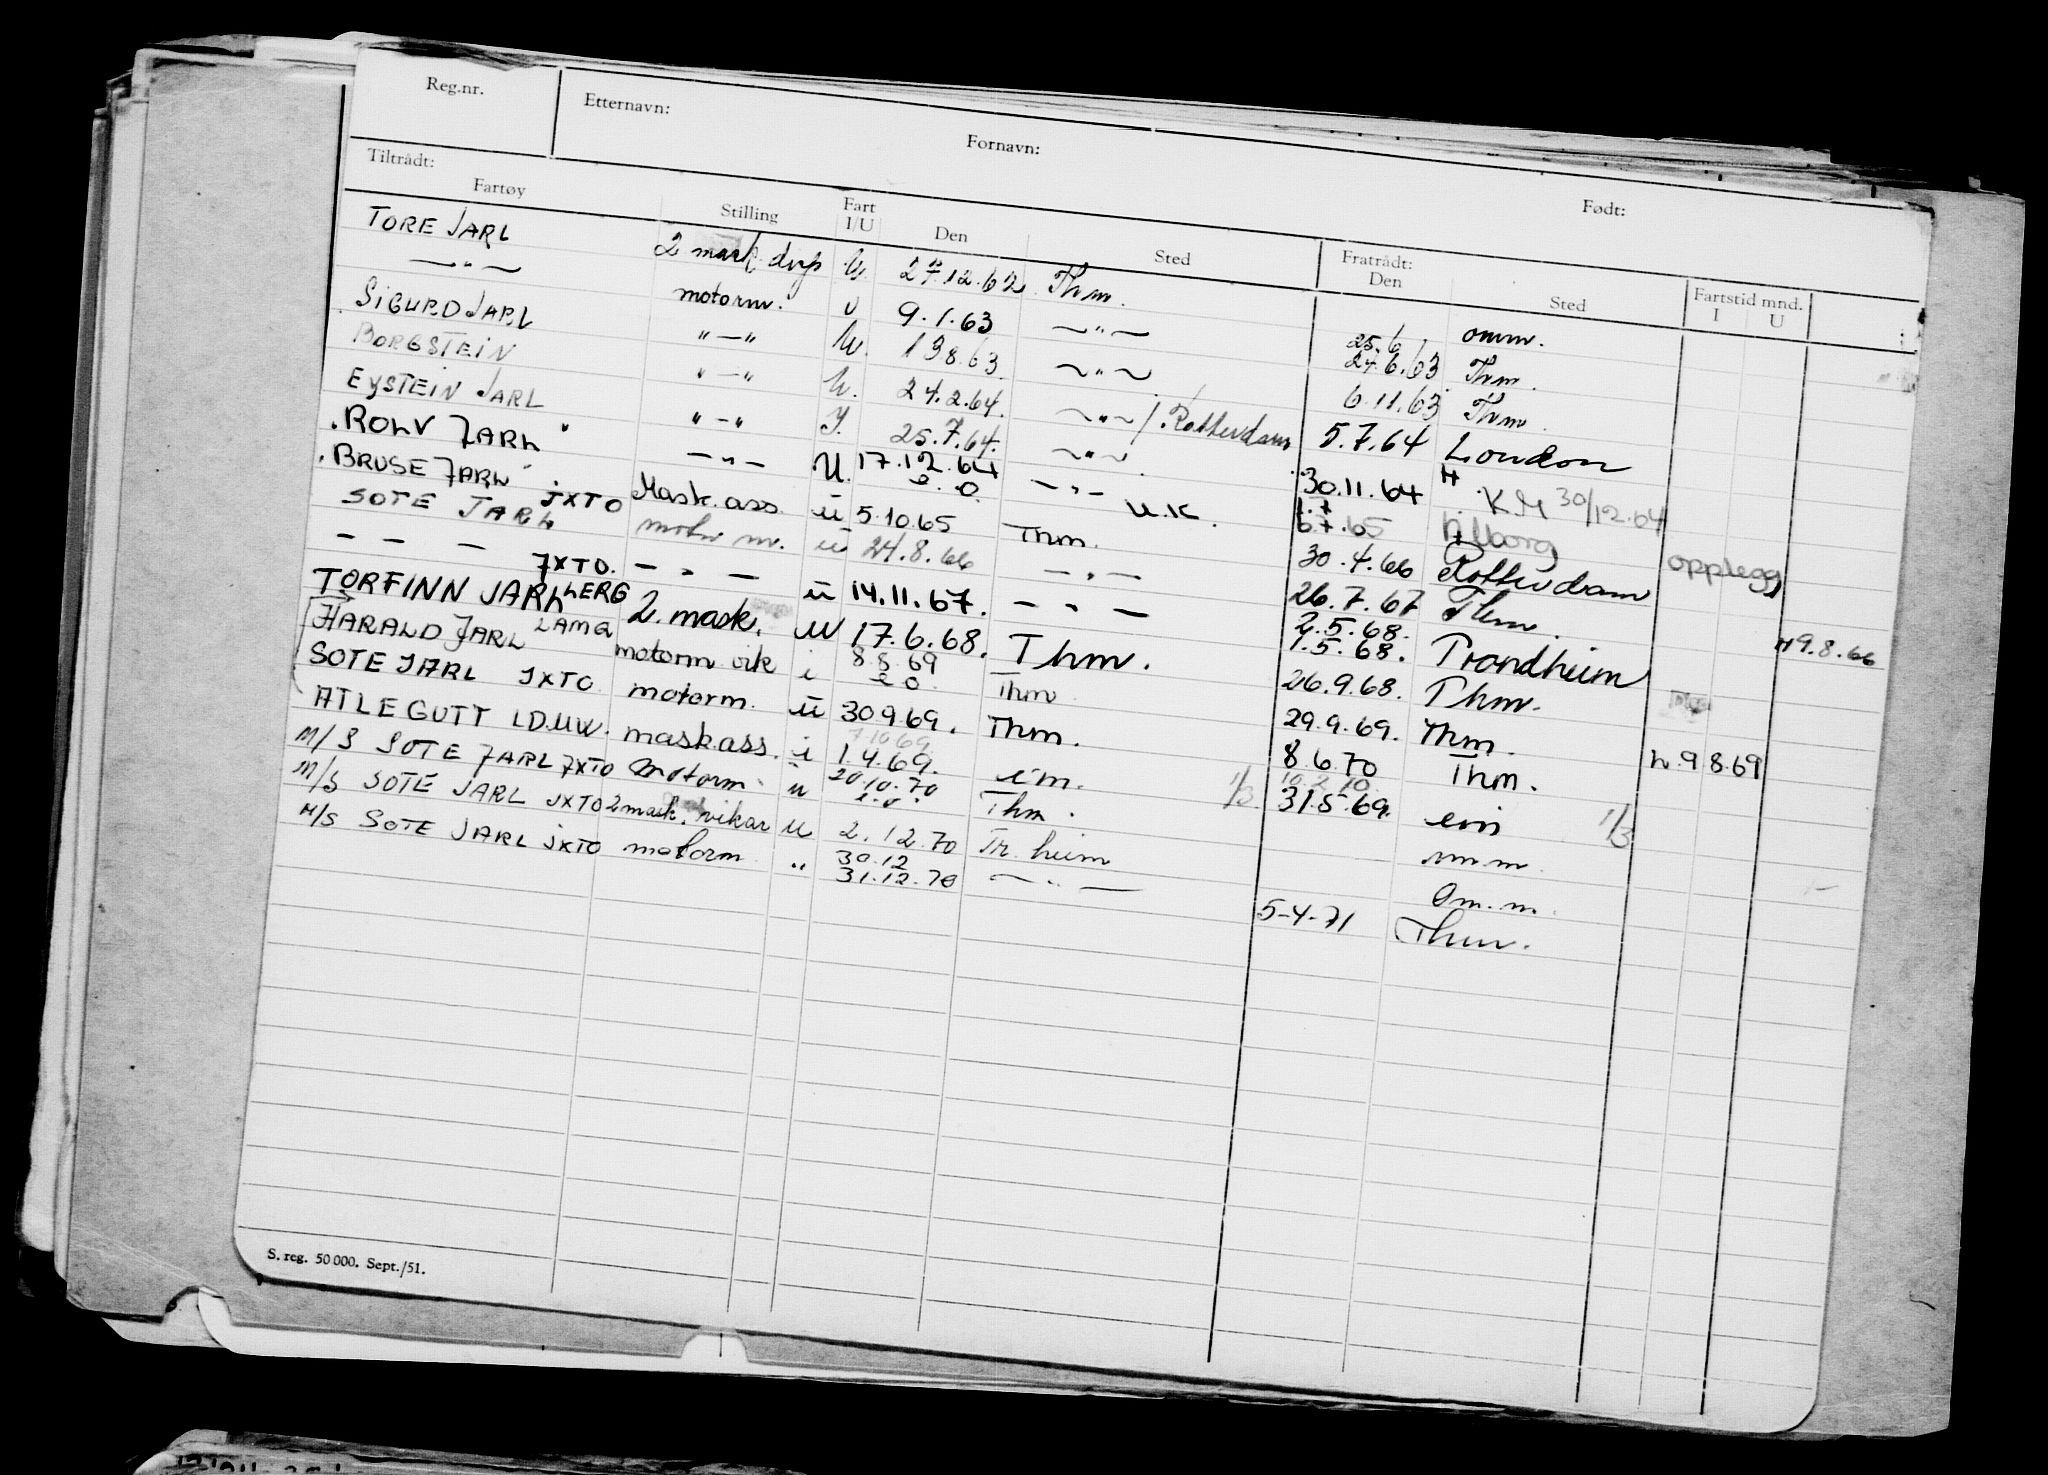 Reg.nr. Etternavn: Fornavn: Født:
Tiltrådt: Fratrådt:
Fartøy Stilling Fart I/U Den Sted Den Sted Fartstid mnd. I U
TORE JARL 2 mask U. 27.12.62 Thm. 25.6 omm.
—"— motorm. U 9.1.63 —"— 24.6.63 Thm.
SIGURD JARL "—" U. 13 8.63 —"— 6.11.63 Thm.
BORGSTEIN "—" U. 24.2.64. —"— / Rotterdam 5.7.64 London
EYSTEIN JARL "—" I. 25.7.64. —"— 30.11.64 H. KM 30/12.64
ROLV JARL —"— U. 17.12.64 —"— 1.7 6.7.65 Ålborg opplegg
BRUSE JARL JXTO Mask.ass. U e.o. 5.10.65 U.K. 30.4.66 Rotterdam
SOTE JARL motorm. U 24.8.66 Thm. 26.7.67 Thm. H9.8.66
— — — JXTO. —"— U 14.11.67. —"— 2.5.68. 1.5.68. Trondheim
TORFINN JARL LERG 2. mask. U 17.6.68. —"— 26.9.68. Thm.
HARALD JARL LAMG motorm vik i 8.8.69 e o. Thm. 29.9.69. Thm. h.9 8.69
SOTE JARL JXTO motorm. U 30 9 69. Thm 8.6.70 Thm.
ATLE GUTT LDUW. mask.ass. i 7.10.69 1.4.69. Thm. 1/3 10.2.70. 31.5.69. em 1/3
M/S SOTE JARL JXTO Motorm. U 20.10.70 e.o. em. m.m
M/S SOTE JARL JXTO 2 mask. vikar U 2.12.70 Thm. Om.m.
M/S SOTE JARL JXTO motorm " 30.12 31.12.70 Tr.heim —"— 5-4-71 Thm.
S. reg. 50 000. Sept./51.